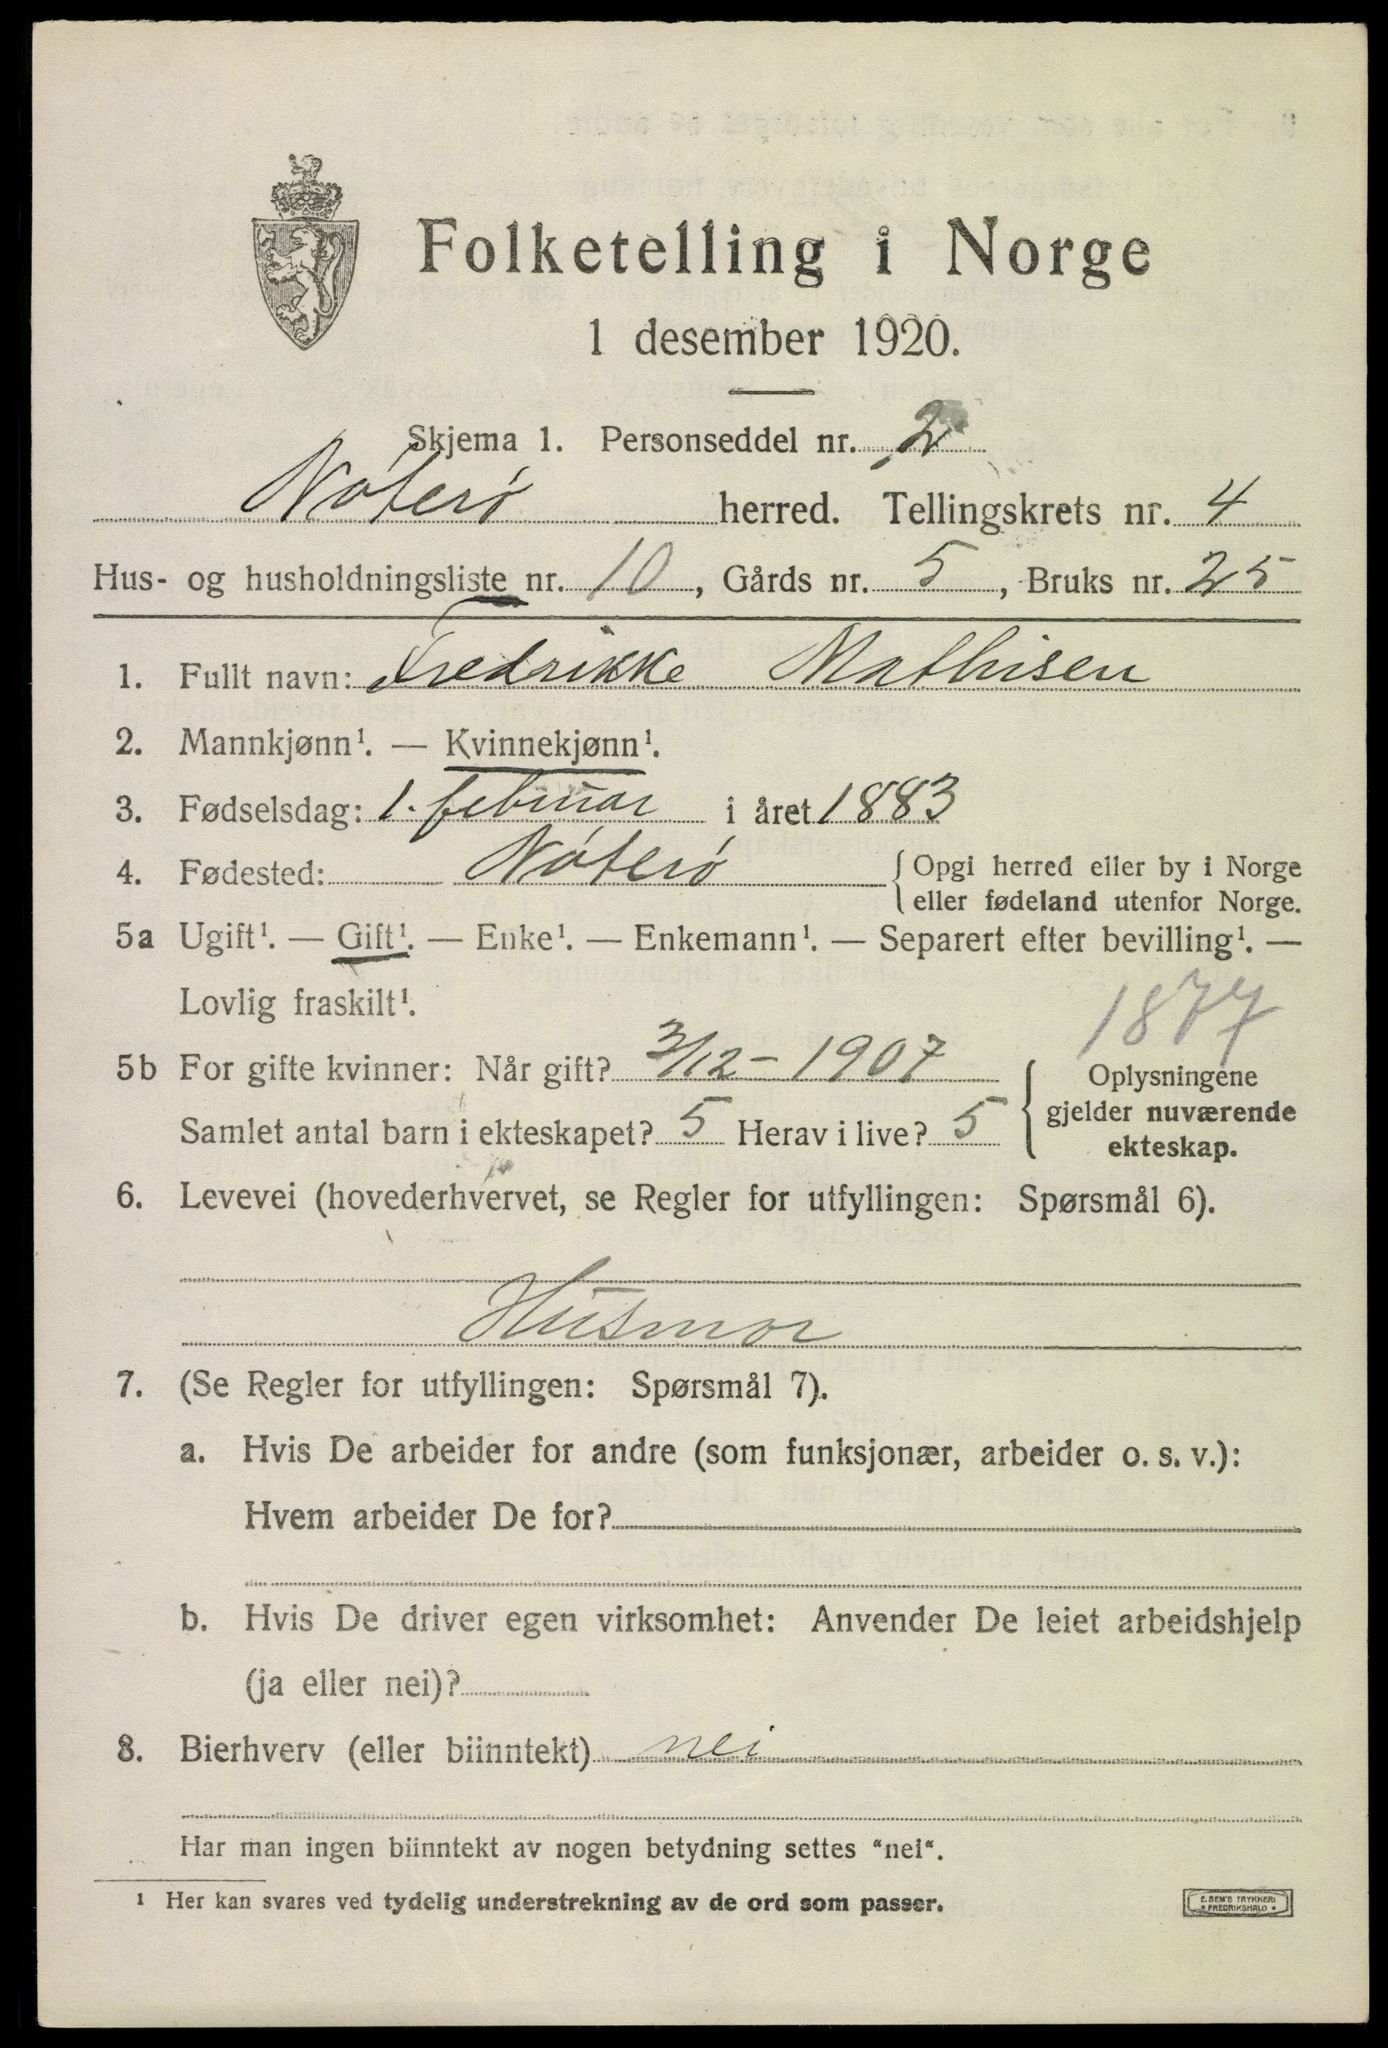 Folketelling i Norge
1 desember 1920.
Skjema 1. Personseddel nr. 2
Nøterø herred. Tellingskrets nr. 4
Hus- og husholdningsliste nr. 10, Gårds nr. 5, Bruks nr. 25
1. Fullt navn: Fredrikke Mathisen
2. Mannkjønn¹. — Kvinnekjønn¹.
3. Fødselsdag: 1. februar i året 1883
4. Fødested: Nøterø { Opgi herred eller by i Norge
eller fødeland utenfor Norge.
5a Ugift¹. — Gift¹. — Enke¹. — Enkemann¹. — Separert efter bevilling¹. —
Lovlig fraskilt¹.
1877
5b For gifte kvinner: Når gift? 3/12 - 1907
Samlet antal barn i ekteskapet? 5 Herav i live? 5
{ Oplysningene
gjelder nuværende
ekteskap.
6. Levevei (hovederhvervet, se Regler for utfyllingen: Spørsmål 6).
Husmor
7. (Se Regler for utfyllingen: Spørsmål 7).
a. Hvis De arbeider for andre (som funksjonær, arbeider o. s. v.):
Hvem arbeider De for?
b. Hvis De driver egen virksomhet: Anvender De leiet arbeidshjelp
(ja eller nei)?
8. Bierhverv (eller biinntekt) nei
Har man ingen biinntekt av nogen betydning settes "nei".
¹ Her kan svares ved tydelig understrekning av de ord som passer.
E. SEM'S TRYKKERI
• FREDRIKSHALD •